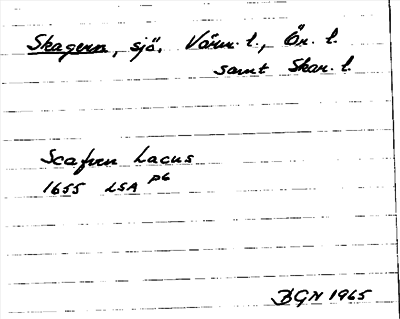 Skagern, sjö. Värm. l., Ör. l.
samt Skar. l.
Scafven Lacus
1655 LSA p6
BGN 1965